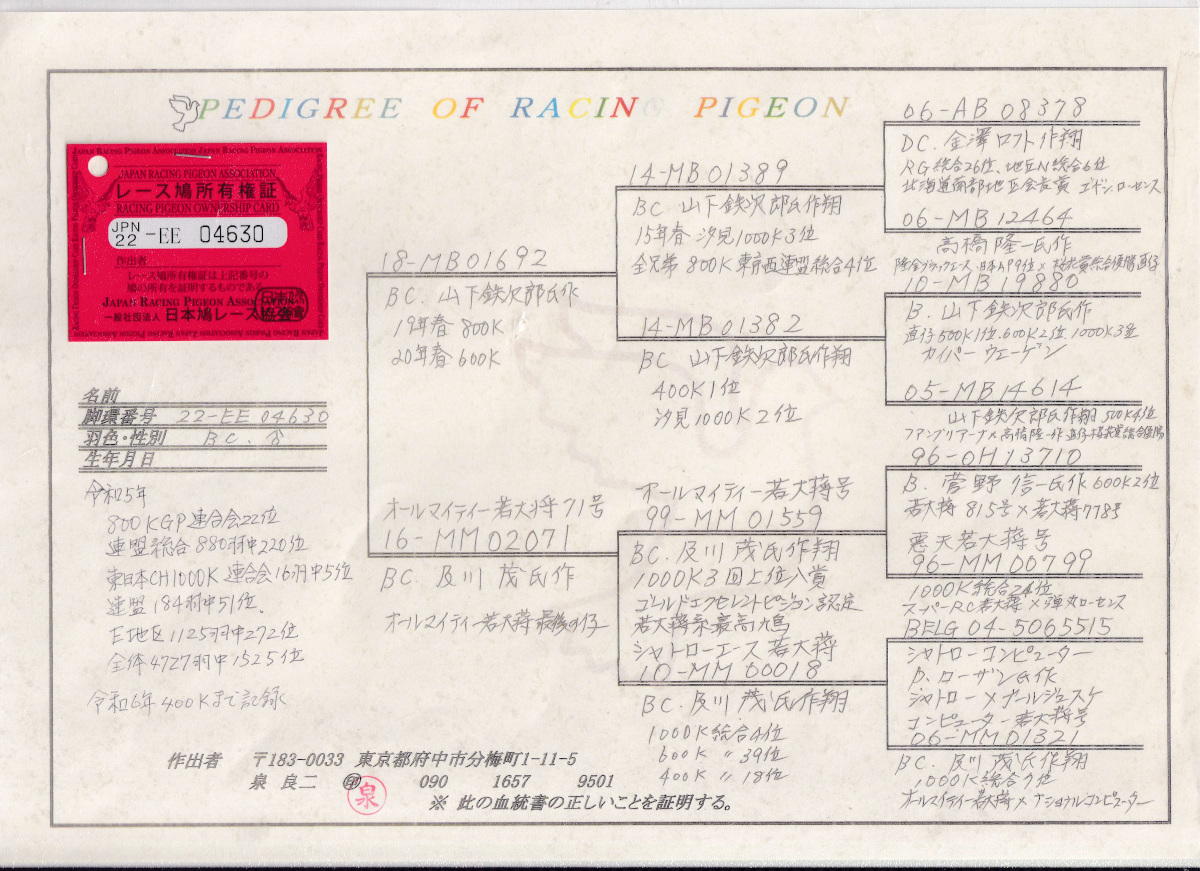 PEDIGREE OF RACING PIGEON
JAPAN RACING PIGEON ASSOCIATION JAPAN RACING PIGEON ASSOCIATION
JAPAN RACING PIGEON ASSOCIATION
レース鳩所有権証
RACING PIGEON OWNERSHIP CARD
JPN
22 -EE 04630
作出者
レース鳩所有権証は上記番号の
鳩の所有を証明するものである
JAPAN RACING PIGEON ASSOCIATION
一般社団法人 日本鳩レース協会
名前
脚環番号 22-EE 04630
羽色・性別 B C . ♂
生年月日
令和5年
800KGP連合会22位
連盟総合 880羽中220位
東日本CH1000K 連合会16羽中5位
連盟 184羽中51位、
E地区 1125羽中272位
全体4727羽中1525位
令和6年 400Kまで記録
18-MB01692
BC. 山下鉄次郎氏作
19年春 800K
20年春 600K
オールマイティー若大将71号
16-MM02071
BC. 及川 茂氏作
オールマイティー若大蒋最後の仔
14-MB01389
BC 山下鉄次郎氏作翔
15年春 汐見1000K3位
全兄弟 800K東京西連盟総合4位
14-MB01382
BC 山下鉄次郎氏作翔
400K1位
汐見1000K2位
オールマイティー若大蒋号
99-MM 01559
BC. 及川 茂氏作翔
1000K3回上位入賞
ゴールドエクセレントピジョン認定
若大蒋系最高九鳩
シャトローエース若大蒋
10-MM 00018
BC. 及川 茂氏作翔
1000K総合4位
600K 〃 39位
400K 〃 18位
06-AB 08378
DC. 金澤ロフト作翔
RG総合26位、地区N総合6位
北海道南部地区会長賞 エドシ.ローセンス
06-MB12464
高橋隆一氏作
10-MB 19880
B. 山下鉄次郎氏作
直仔500K1位.600K2位.1000K3位
カイパー ウェーゲン
05-MB14614
山下鉄次郎氏作翔 500K4位
96-OH13710
B. 菅野信一氏作 600K2位
若大蒋 815号×若大蒋778号
悪天若大蒋号
96-MM00799
1000K総合24位
スーパーRC若大蒋×弾丸ローセンス
BELG 04-5065515
シャトローコンピューター
D. ローザン氏作
シャトロー×ナールジェスケ
コンピューター若大蒋号
06-MM01321
BC. 及川 茂氏作翔
1000K総合7位
オールマイティー若大蒋×ナショナルコンピューター
作出者 〒183-0033 東京都府中市分梅町1-11-5
泉 良二 ㊞ 090 1657 9501
泉
※ 此の血統書の正しいことを証明する。